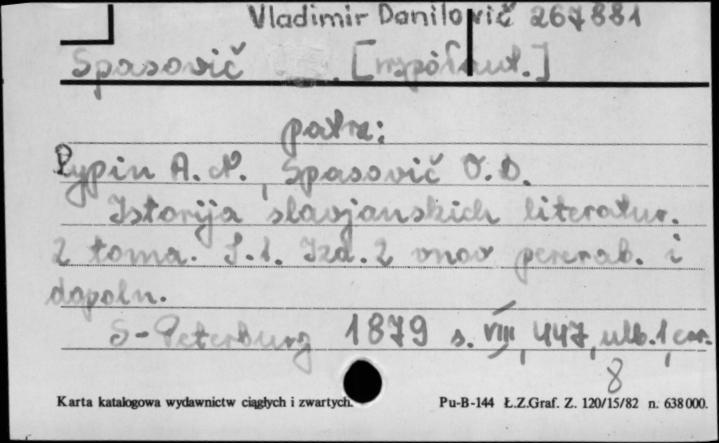 Vladimir Danilovič 267881
Spasovič [współaut.]
patrz:
Pypin A.N., Spasovič V.D.
Istorija slavjanskich literatur.
2 toma. T.1. Izd. 2 vnov pererab. i
dopoln.
S-Peterburg 1879 s. VIII, 447, ulb. 1, err.
8
Karta katalogowa wydawnictw ciągłych i zwartych.
Pu-B-144 Ł.Z.Graf. Z. 120/15/82 n. 638000.